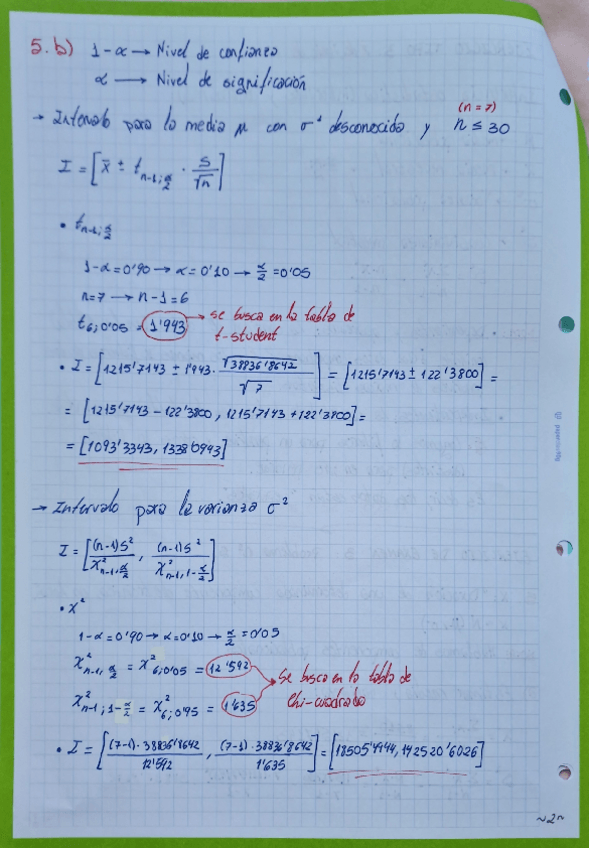 5.b) 1-α → Nivel de confianza
α → Nivel de significación
(n=7)
→ Intervalo para la media μ con σ² desconocida y n ≤ 30
I = [x̄ ± t_{n-1; α/2} · S/√n]
• t_{n-1; α/2}
1-α = 0'90 → α = 0'10 → α/2 = 0'05
n=7 → n-1=6
t_{6; 0'05} = 1'943 → se busca en la tabla de
t-student
• I = [1215'7143 ± 1'943 · √38836'8642 / √7] = [1215'7143 ± 122'3800] =
= [1215'7143 - 122'3800, 1215'7143 + 122'3800] =
= [1093'3343, 1338'0943]
→ Intervalo para la varianza σ²
I = [(n-1)S² / χ²_{n-1, α/2}, (n-1)S² / χ²_{n-1, 1-α/2}]
• χ²
1-α = 0'90 → α = 0'10 → α/2 = 0'05
χ²_{n-1; α/2} = χ²_{6; 0'05} = 12'592 → se busca en la tabla de
χ²_{n-1; 1-α/2} = χ²_{6; 0'95} = 1'635 → chi-cuadrado
• I = [(7-1)·38836'8642 / 12'592, (7-1)·38836'8642 / 1'635] = [18505'4944, 142520'6026]
~2~